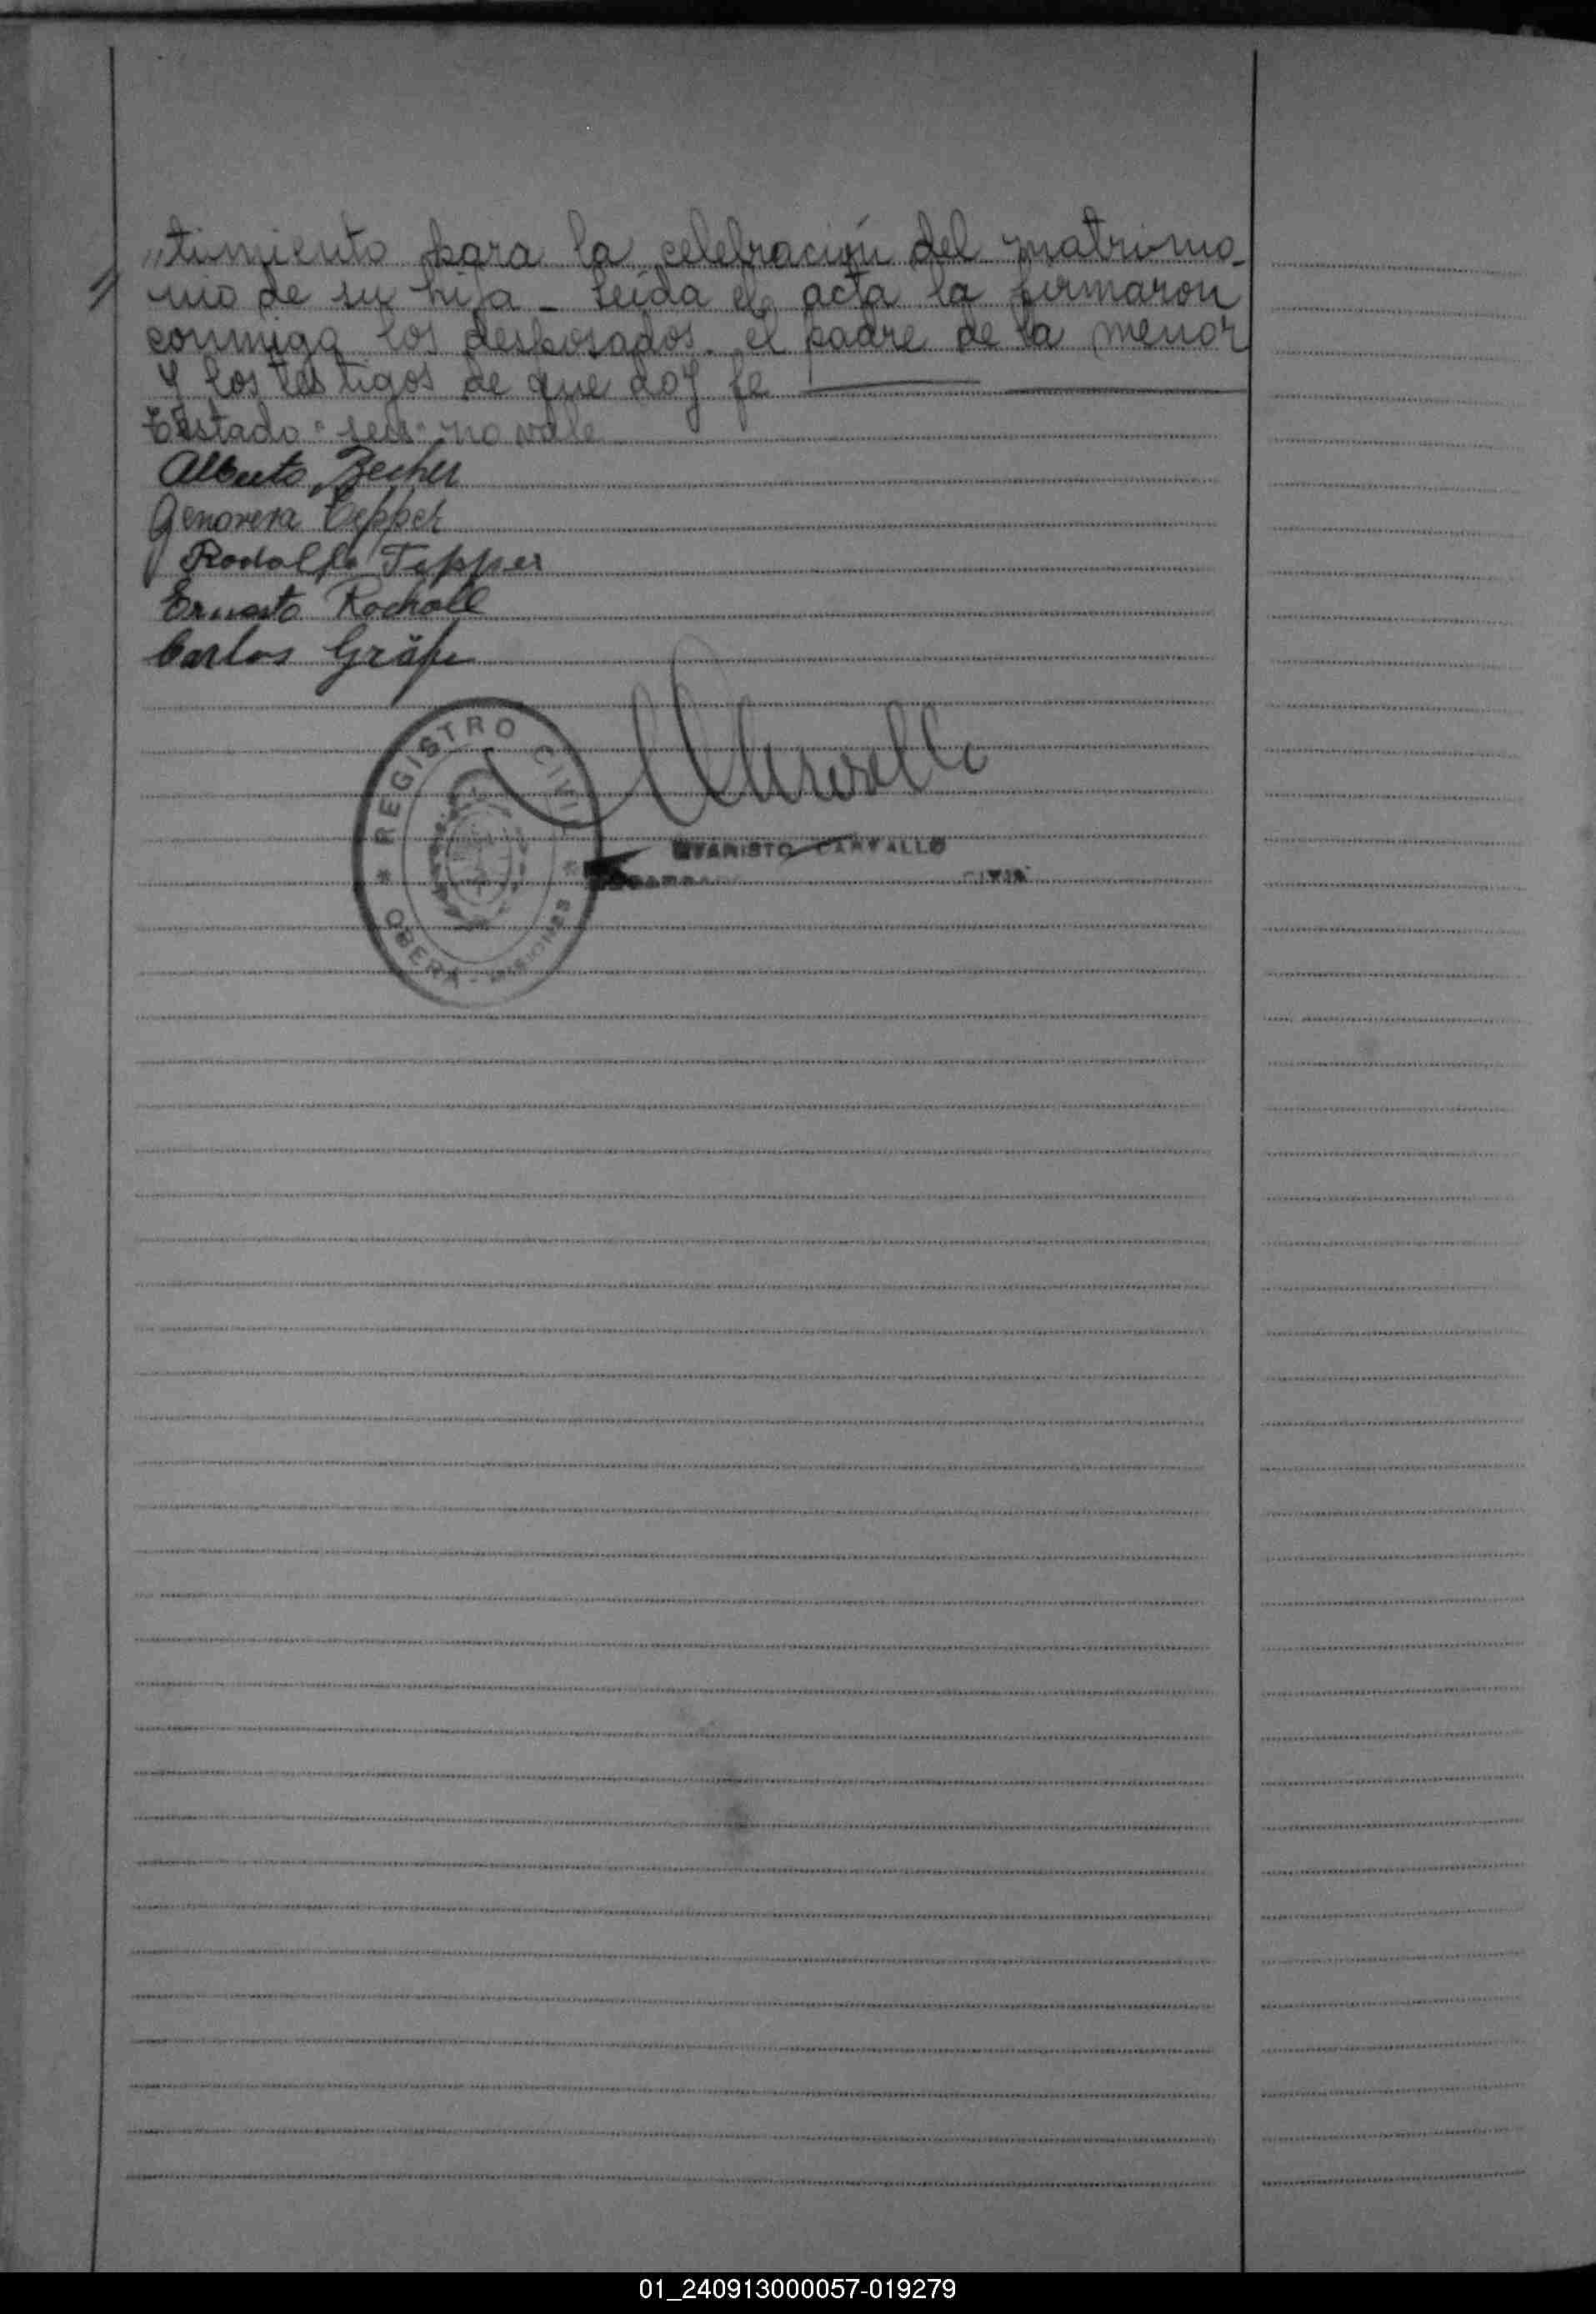 "timiento para la celebración del matrimo-
nio de su hija - Leida el acta la firmaron
conmigo los desposados. el padre de la menor
y los testigos de que doy fe
Testado "seis" no vale
Alberto Becher
Genoveva Tepper
Rodolfo Tepper
Ernesto Rocholl
Carlos Gräfe
REGISTRO CIVIL
OBERÁ - MISIONES
EVARISTO CARVALLO
CIVIL
01_240913000057-019279